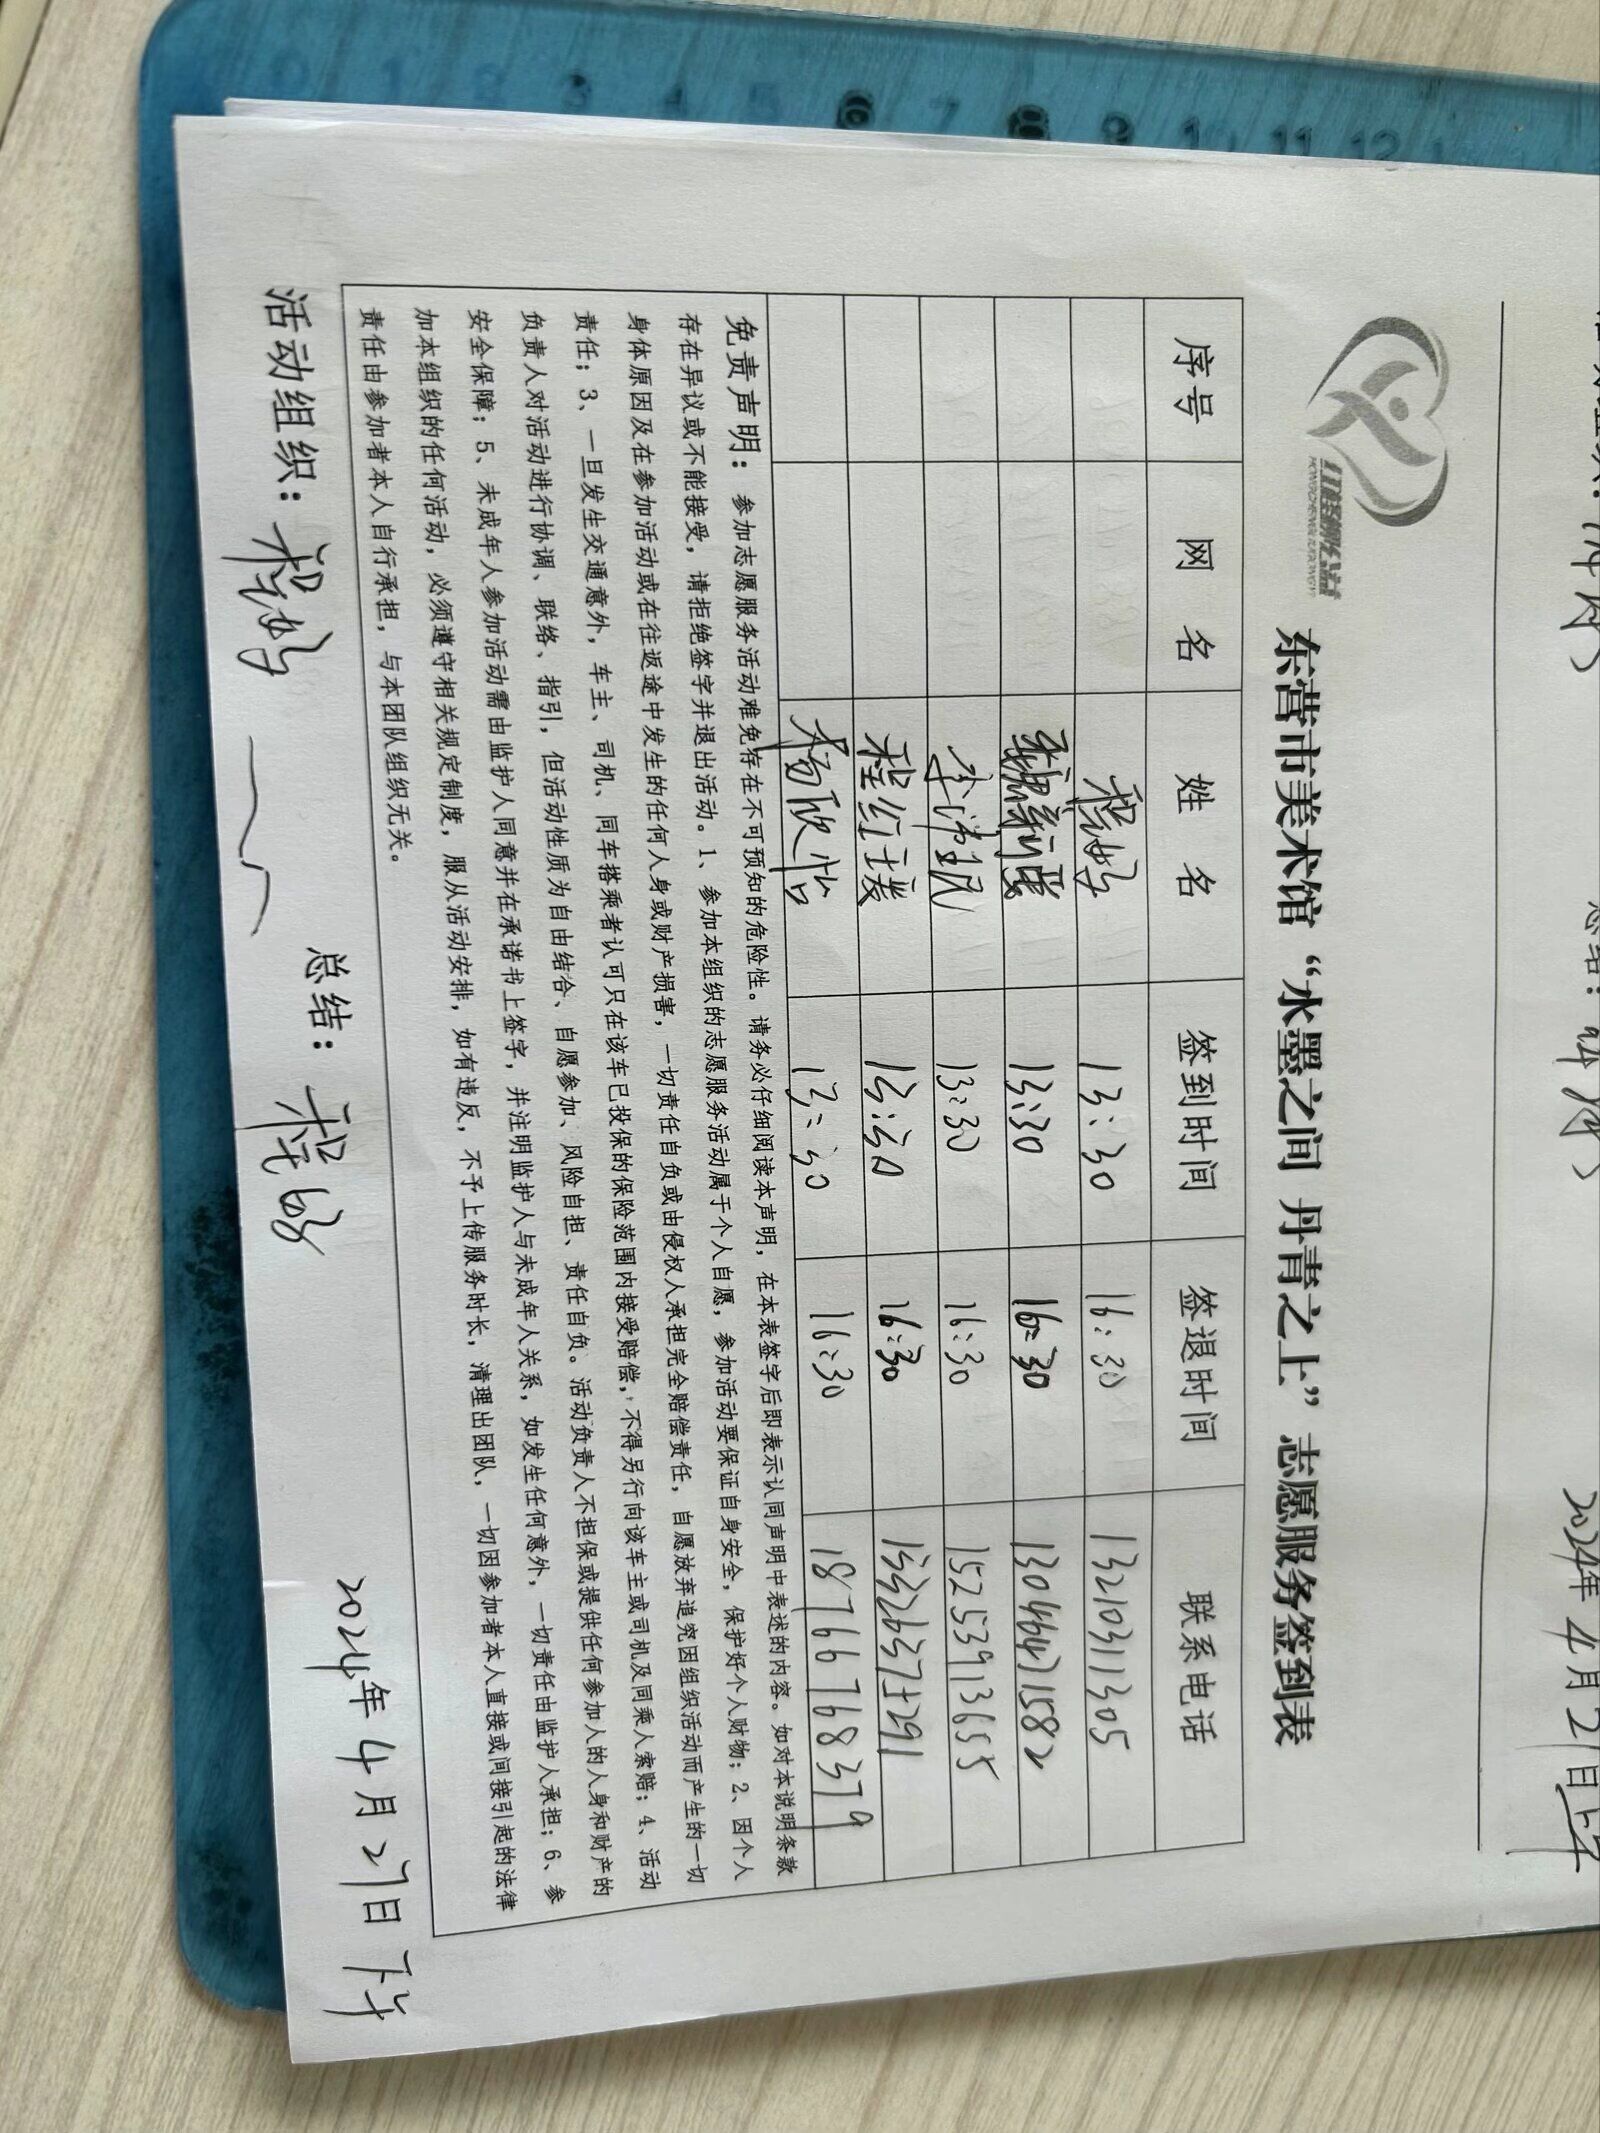 总结：
2024年4月21日上午
红诚公益
东营市美术馆“水墨之间 丹青之上”志愿服务签到表
序号 网名 姓名 签到时间 签退时间 联系电话
13:30 16:30 13210311305
13:30 16:30 13046471582
13:30 16:30 15253913655
程红瑛 13:30 16:30
杨欣怡 13:30 16:30 18766768379
免责声明：参加志愿服务活动难免存在不可预知的危险性。请务必仔细阅读本声明，在本表签字后即表示认同声明中表述的内容。如对本说明条款
存在异议或不能接受，请拒绝签字并退出活动。1、参加本组织的志愿服务活动属于个人自愿，参加活动要保证自身安全，保护好个人财物；2、因个人
身体原因及在参加活动或在往返途中发生的任何人身或财产损害，一切责任自负或由侵权人承担完全赔偿责任，自愿放弃追究因组织活动而产生的一切
责任；3、一旦发生交通意外，车主、司机、同车搭乘者认可只在该车已投保的保险范围内接受赔偿，不得另行向该车主或司机及同乘人索赔；4、活动
负责人对活动进行协调、联络、指引，但活动性质为自由结合、自愿参加、风险自担、责任自负。活动负责人不担保或提供任何参加人的人身和财产的
安全保障；5、未成年人参加活动需由监护人同意并在承诺书上签字，并注明监护人与未成年人关系，如发生任何意外，一切责任由监护人承担；6、参
加本组织的任何活动，必须遵守相关规定制度，服从活动安排，如有违反，不予上传服务时长，清理出团队，一切因参加者本人直接或间接引起的法律
责任由参加者本人自行承担，与本团队组织无关。
活动组织： 总结：
2024年4月21日下午